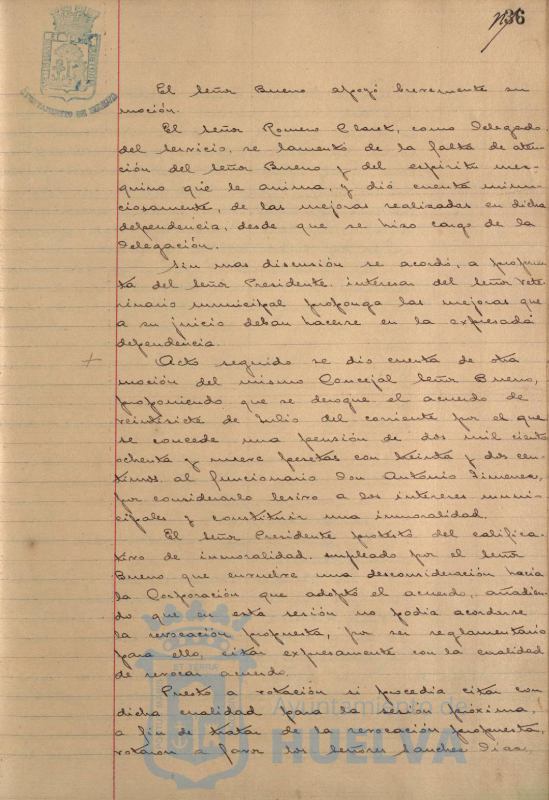 36
AYUNTAMIENTO DE HUELVA
El Señor Bueno apoyó brevemente su
moción.
El Señor Romero Claret, como Delegado
del Servicio, se lamentó de la falta de aten-
ción del Señor Bueno y del espiritu mez-
quino que le anima, y dió cuenta minu-
ciosamente, de las mejoras realizadas en dicha
dependencia, desde que se hizo cargo de la
Delegación.
Sin mas discusión se acordó, a propues-
ta del Señor Presidente, interesar del Señor Vete-
rinario municipal proponga las mejoras que
a su juicio deban hacerse en la expresada
dependencia.
Acto seguido se dio cuenta de otra
moción del mismo Concejal Señor Bueno,
proponiendo que se derogue el acuerdo de
veintisiete de Julio del corriente por el que
se concede una pensión de dos mil ciento
ochenta y nueve pesetas con treinta y dos cen-
timos al funcionario Don Antonio Jimenez,
por considerarlo lesivo a los intereses muni-
cipales y constituir una inmoralidad.
El Señor Presidente protestó del califica-
tivo de inmoralidad empleado por el Señor
Bueno que envuelve una desconsideración hacia
la Corporación que adoptó el acuerdo, añadien-
do que en esta sesión no podia acordarse
la revocación propuesta, por ser reglamentario
para ello, citar expresamente con la cualidad
de revocar acuerdo.
Puesto a votación si procedia citar con
dicha cualidad para la sesión próxima,
a fin de tratar de la revocación propuesta,
votaron a favor los Señores Sanchez Diaz,
Ayuntamiento de
HUELVA